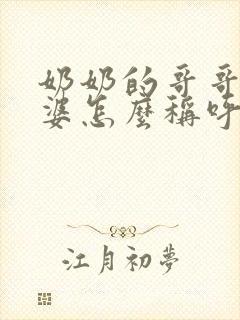 奶奶的哥哥
婆怎麼稱呼
江月初夢